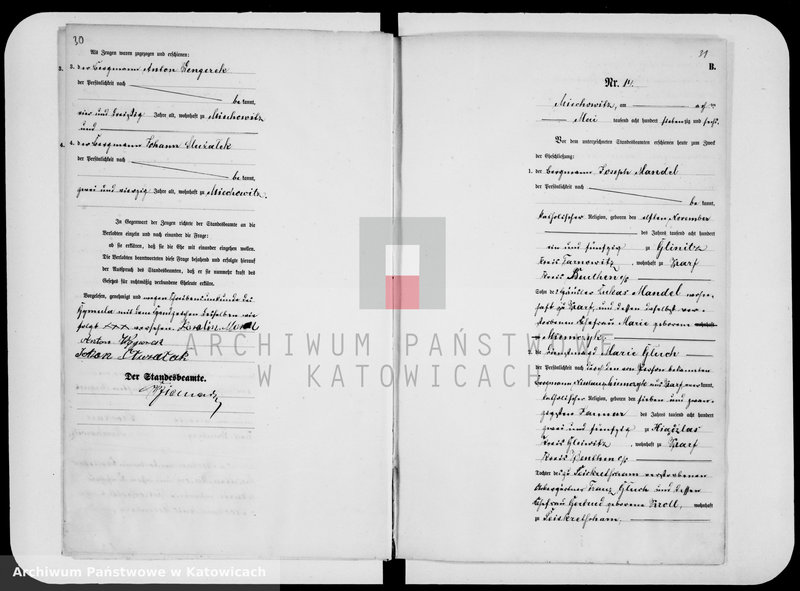 30
Als Zeugen waren zugezogen und erschienen:
3. der Bergmann Anton
der Persönlichkeit nach
be kannt,
vier und dreißig Jahre alt, wohnhaft zu Miechowitz
und
4. der Bergmann Johann
der Persönlichkeit nach
be kannt,
zwei und vierzig Jahre alt, wohnhaft zu Miechowitz.
In Gegenwart der Zeugen richtete der Standesbeamte an die
Verlobten einzeln und nach einander die Frage:
ob sie erklären, daß sie die Ehe mit einander eingehen wollen.
Die Verlobten beantworteten diese Frage bejahend und erfolgte hierauf
der Ausspruch des Standesbeamten, daß er sie nunmehr kraft des
Gesetzes für rechtmäßig verbundene Eheleute erkläre.
Vorgelesen, genehmigt und wegen Schreibensunkunde der
mit dem Handzeichen derselben wie
folgt xxx versehen.
Anton
Johan
Der Standesbeamte.
31
B.
Nr. 14.
Miechowitz, am
Mai tausend acht hundert siebenzig und sechs.
Vor dem unterzeichneten Standesbeamten erschienen heute zum Zweck
der Eheschließung:
1. der Bergmann Joseph Mandel
der Persönlichkeit nach
be kannt,
katholischer Religion, geboren den elften November
des Jahres tausend acht hundert
ein und fünfzig zu Glinitz
Kreis Tarnowitz, wohnhaft zu Karf
Kreis Beuthen o/s
Sohn des Häusler Lukas Mandel wohn-
haft zu Karf, und dessen daselbst ver-
storbenen Ehefrau Marie geborene
2. die Dienstmagd Marie Gluch
der Persönlichkeit nach
Bergmann aus Karf anerkannt,
katholischer Religion, geboren den sieben und zwan-
zigsten Januar des Jahres tausend acht hundert
zwei und fünfzig zu
Kreis Gleiwitz, wohnhaft zu Karf
Kreis Beuthen o/s
Tochter des zu Peiskretscham verstorbenen
Franz Gluch und dessen
Ehefrau Gertrud geborene Kroll, wohnhaft
zu Peiskretscham.
ARCHIWUM PAŃSTWOWE
W KATOWICACH
Archiwum Państwowe w Katowicach